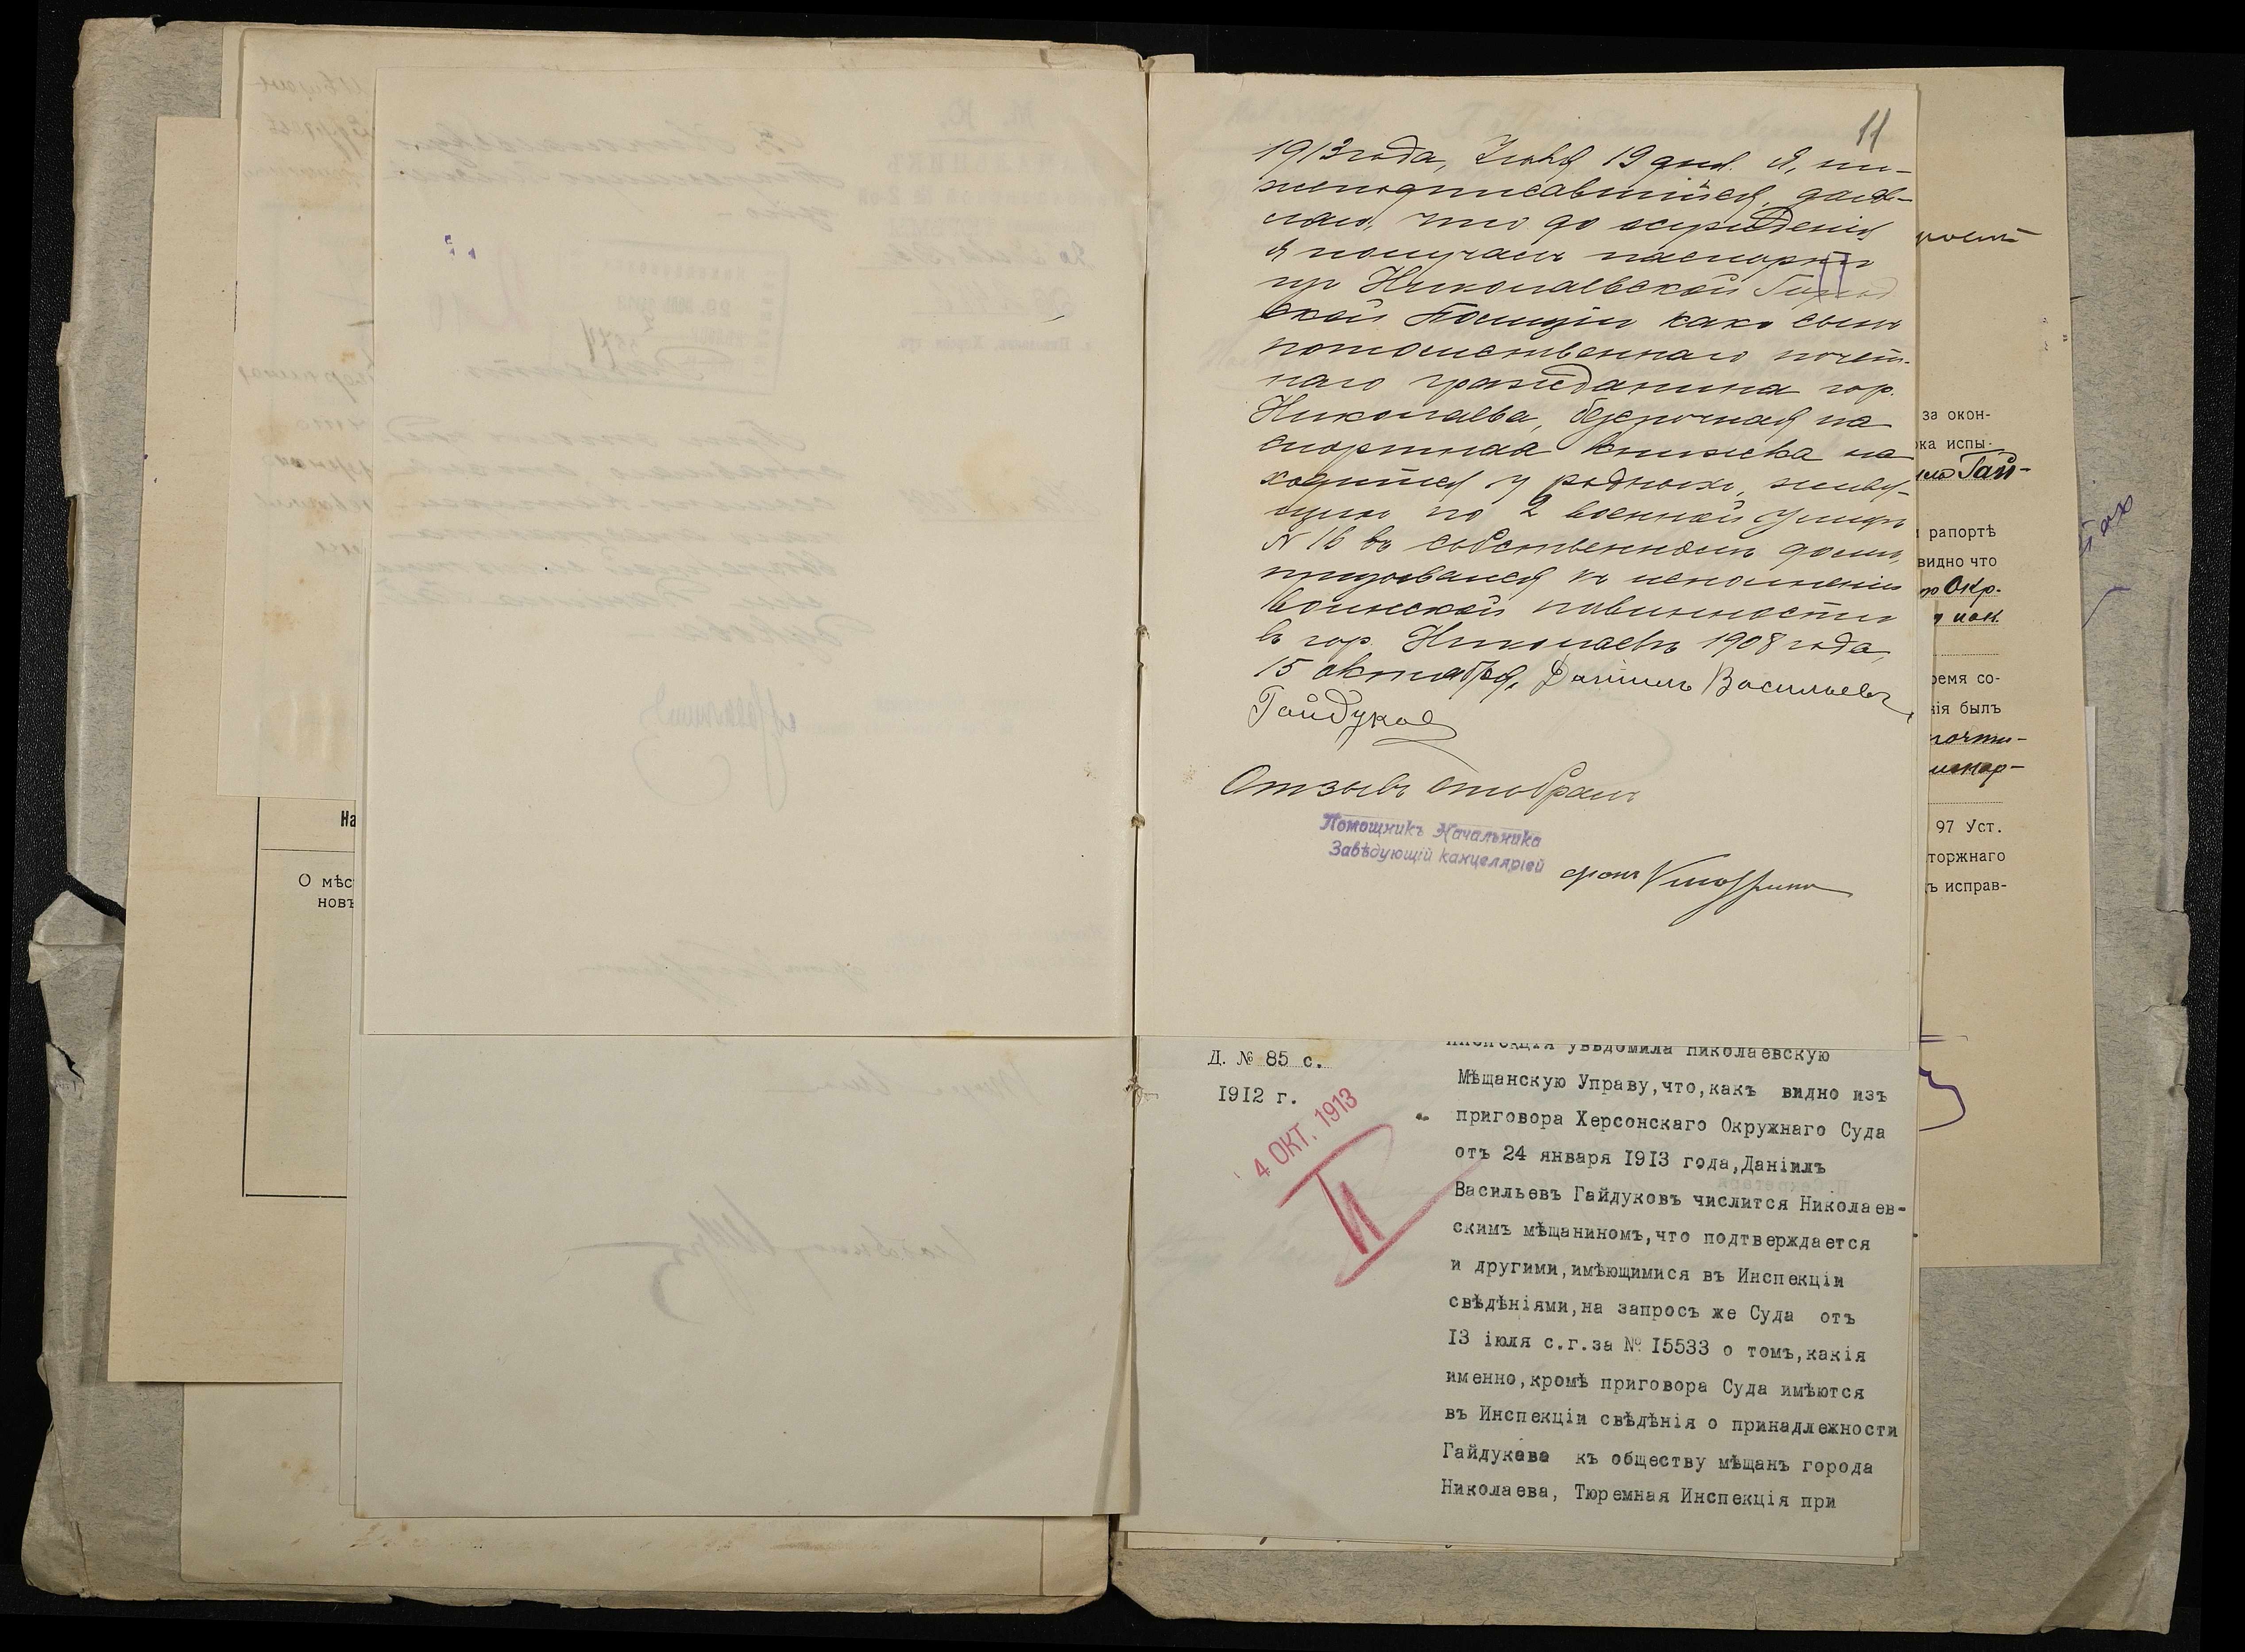 11
1913 года, Іюля 19 дня. Я, ни-
жеподписавшійся, заяв-
ляю, что до осужденія
я получалъ паспортъ
изъ Николаевской Город
ской Полиціи какъ сынъ
потомственнаго почет-
наго гражданина гор.
Николаева, безсрочная па
спортная книжка на
ходится у родныхъ, живу-
щихъ по 2 военной улицѣ
N 16 въ собственномъ домѣ,
призывался къ исполненію
воинской повинности
въ гор. Николаевѣ 1908 года,
15 октября, Даніилъ Васильевъ
Гайдуковъ
Отзывъ отобралъ
Помощникъ Начальника
Завѣдующій канцеляріей
фонъ
Д. № 85 с.
1912 г.
4 ОКТ. 1913
II
Инспекція увѣдомила Николаевскую
Мѣщанскую Управу,что,какъ видно изъ
приговора Херсонскаго Окружнаго Суда
отъ 24 января 1913 года,Даніилъ
Васильевъ Гайдуковъ числится Николаев-
скимъ мѣщаниномъ,что подтверждается
и другими,имѣющимися въ Инспекціи
свѣдѣніями,на запросъ же Суда отъ
13 іюля с.г.за № 15533 о томъ,какія
именно,кромѣ приговора Суда имѣются
въ Инспекціи свѣдѣнія о принадлежности
Гайдукова къ обществу мѣщанъ города
Николаева, Тюремная Инспекція при
На
О мѣс
новъ
за окон-
ока испы-
Гай-
рапортѣ
видно что
Окр.
ремя со-
нія былъ
97 Уст.
торжнаго
ъ исправ-